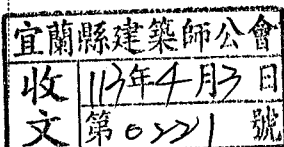 宜蘭縣建築師公會
收文 113年4月3日
第0221號